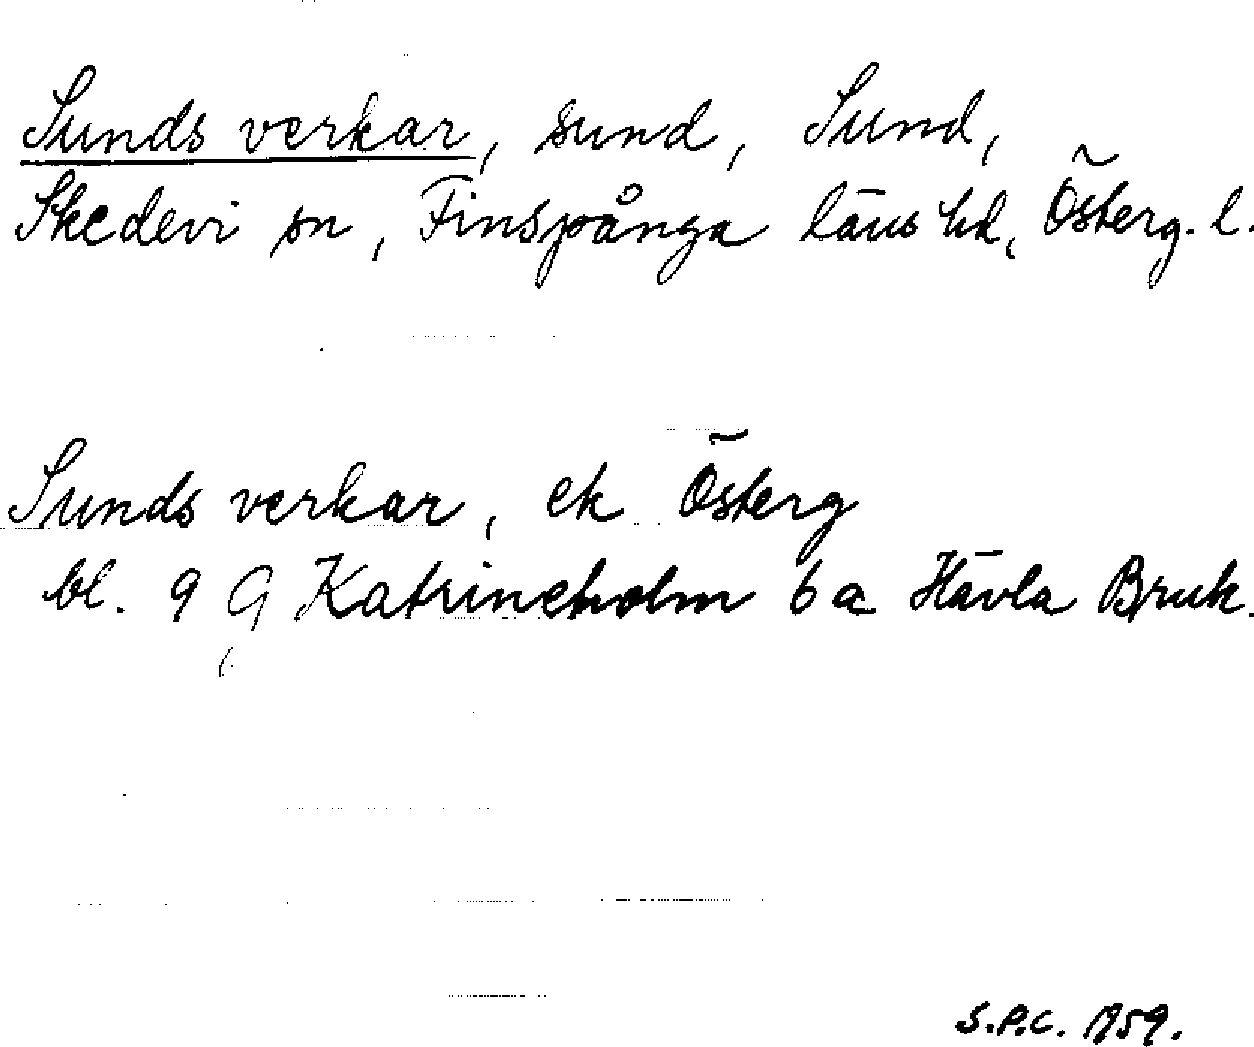 Sunds verkar, sund, Sund,
Skedevi sn, Finspånga läns hd, Österg. l.
Sunds verkar, ek Österg
bl. 9 G Katrineholm 6 a Hävla Bruk.
S.P.C. 1959.